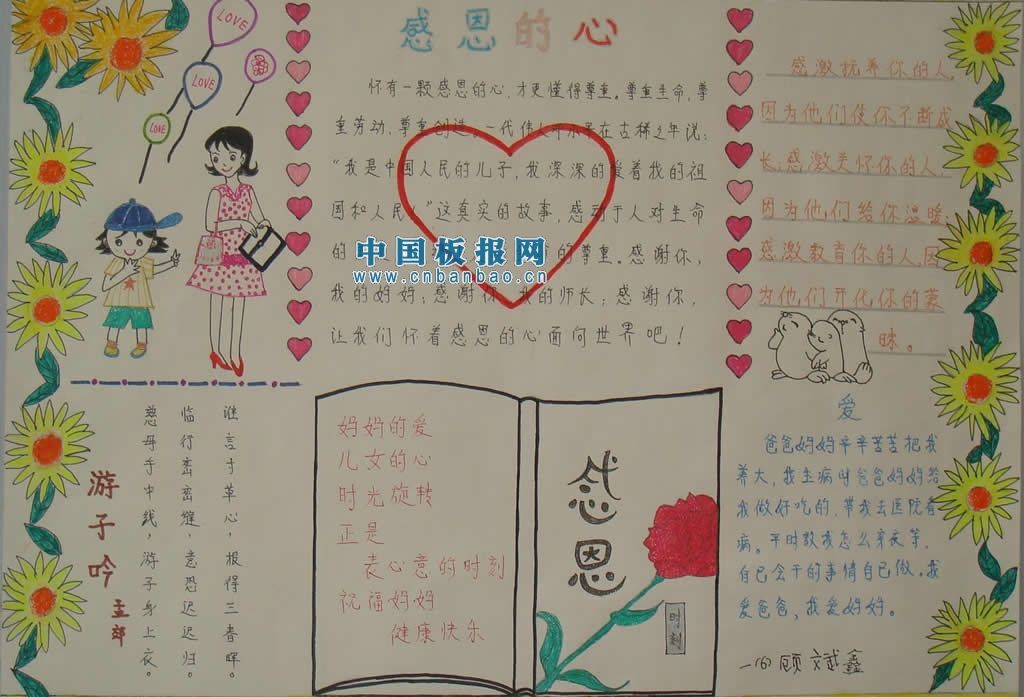 感恩的心
怀有一颗感恩的心，才更懂得尊重。尊重生命，尊
重劳动，尊重创造，一代伟人邓小平在古稀之年说：
“我是中国人民的儿子，我深深的爱着我的祖
国和人民。”这真实的故事，感动于人对生命
的 的尊重。感谢你，
我的妈妈；感谢你 我的师长；感谢你，
让我们怀着感恩的心面向世界吧！
中国板报网
www.cnbanbao.cn
LOVE
LOVE
LOVE
感激抚养你的人，
因为他们使你不断成
长；感激关怀你的人，
因为他们给你温暖；
感激教育你的人，因
为他们开化你的蒙
昧。
游子吟
王郊
慈母手中线，游子身上衣。
临行密密缝，意恐迟迟归。
谁言寸草心，报得三春晖。
妈妈的爱
儿女的心
时光旋转
正是
表心意的时刻
祝福妈妈
健康快乐
感恩
时刻
爱
爸爸妈妈辛辛苦苦把我
养大，我生病时爸爸妈妈给
我做好吃的，带我去医院看
病。平时教我怎么穿衣等，
自己会干的事情自己做。我
爱爸爸，我爱妈妈。
一(6)顾斌鑫